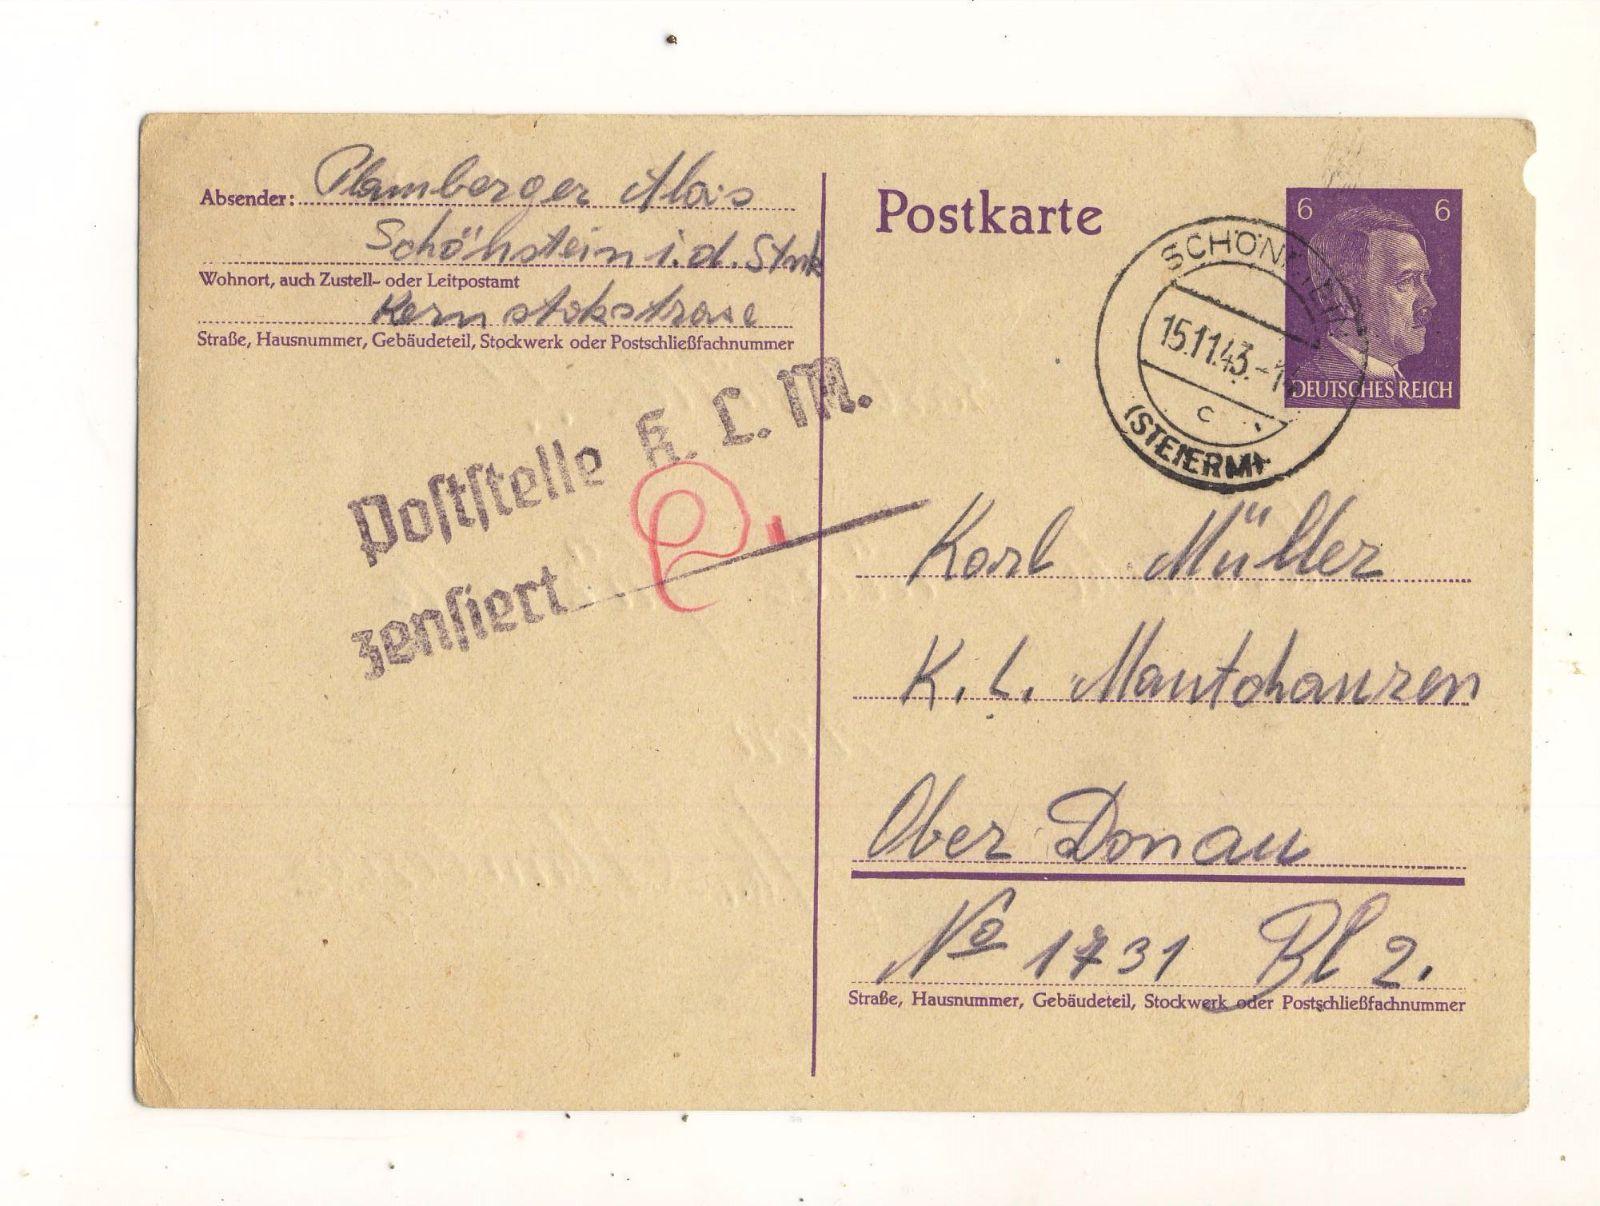 Absender: Plamberger Alois
Schönstein i. d. Stmk
Wohnort, auch Zustell- oder Leitpostamt
Kernstokstrase
Straße, Hausnummer, Gebäudeteil, Stockwerk oder Postschließfachnummer
Poststelle K. L. M.
zensiert
Postkarte
6 6
DEUTSCHES REICH
SCHÖNSTEIN
15.11.43
c
(STEIERM
Karl Müller
K. L. Mautohausen
Ober Donau
No 1731 Bl 2.
Straße, Hausnummer, Gebäudeteil, Stockwerk oder Postschließfachnummer